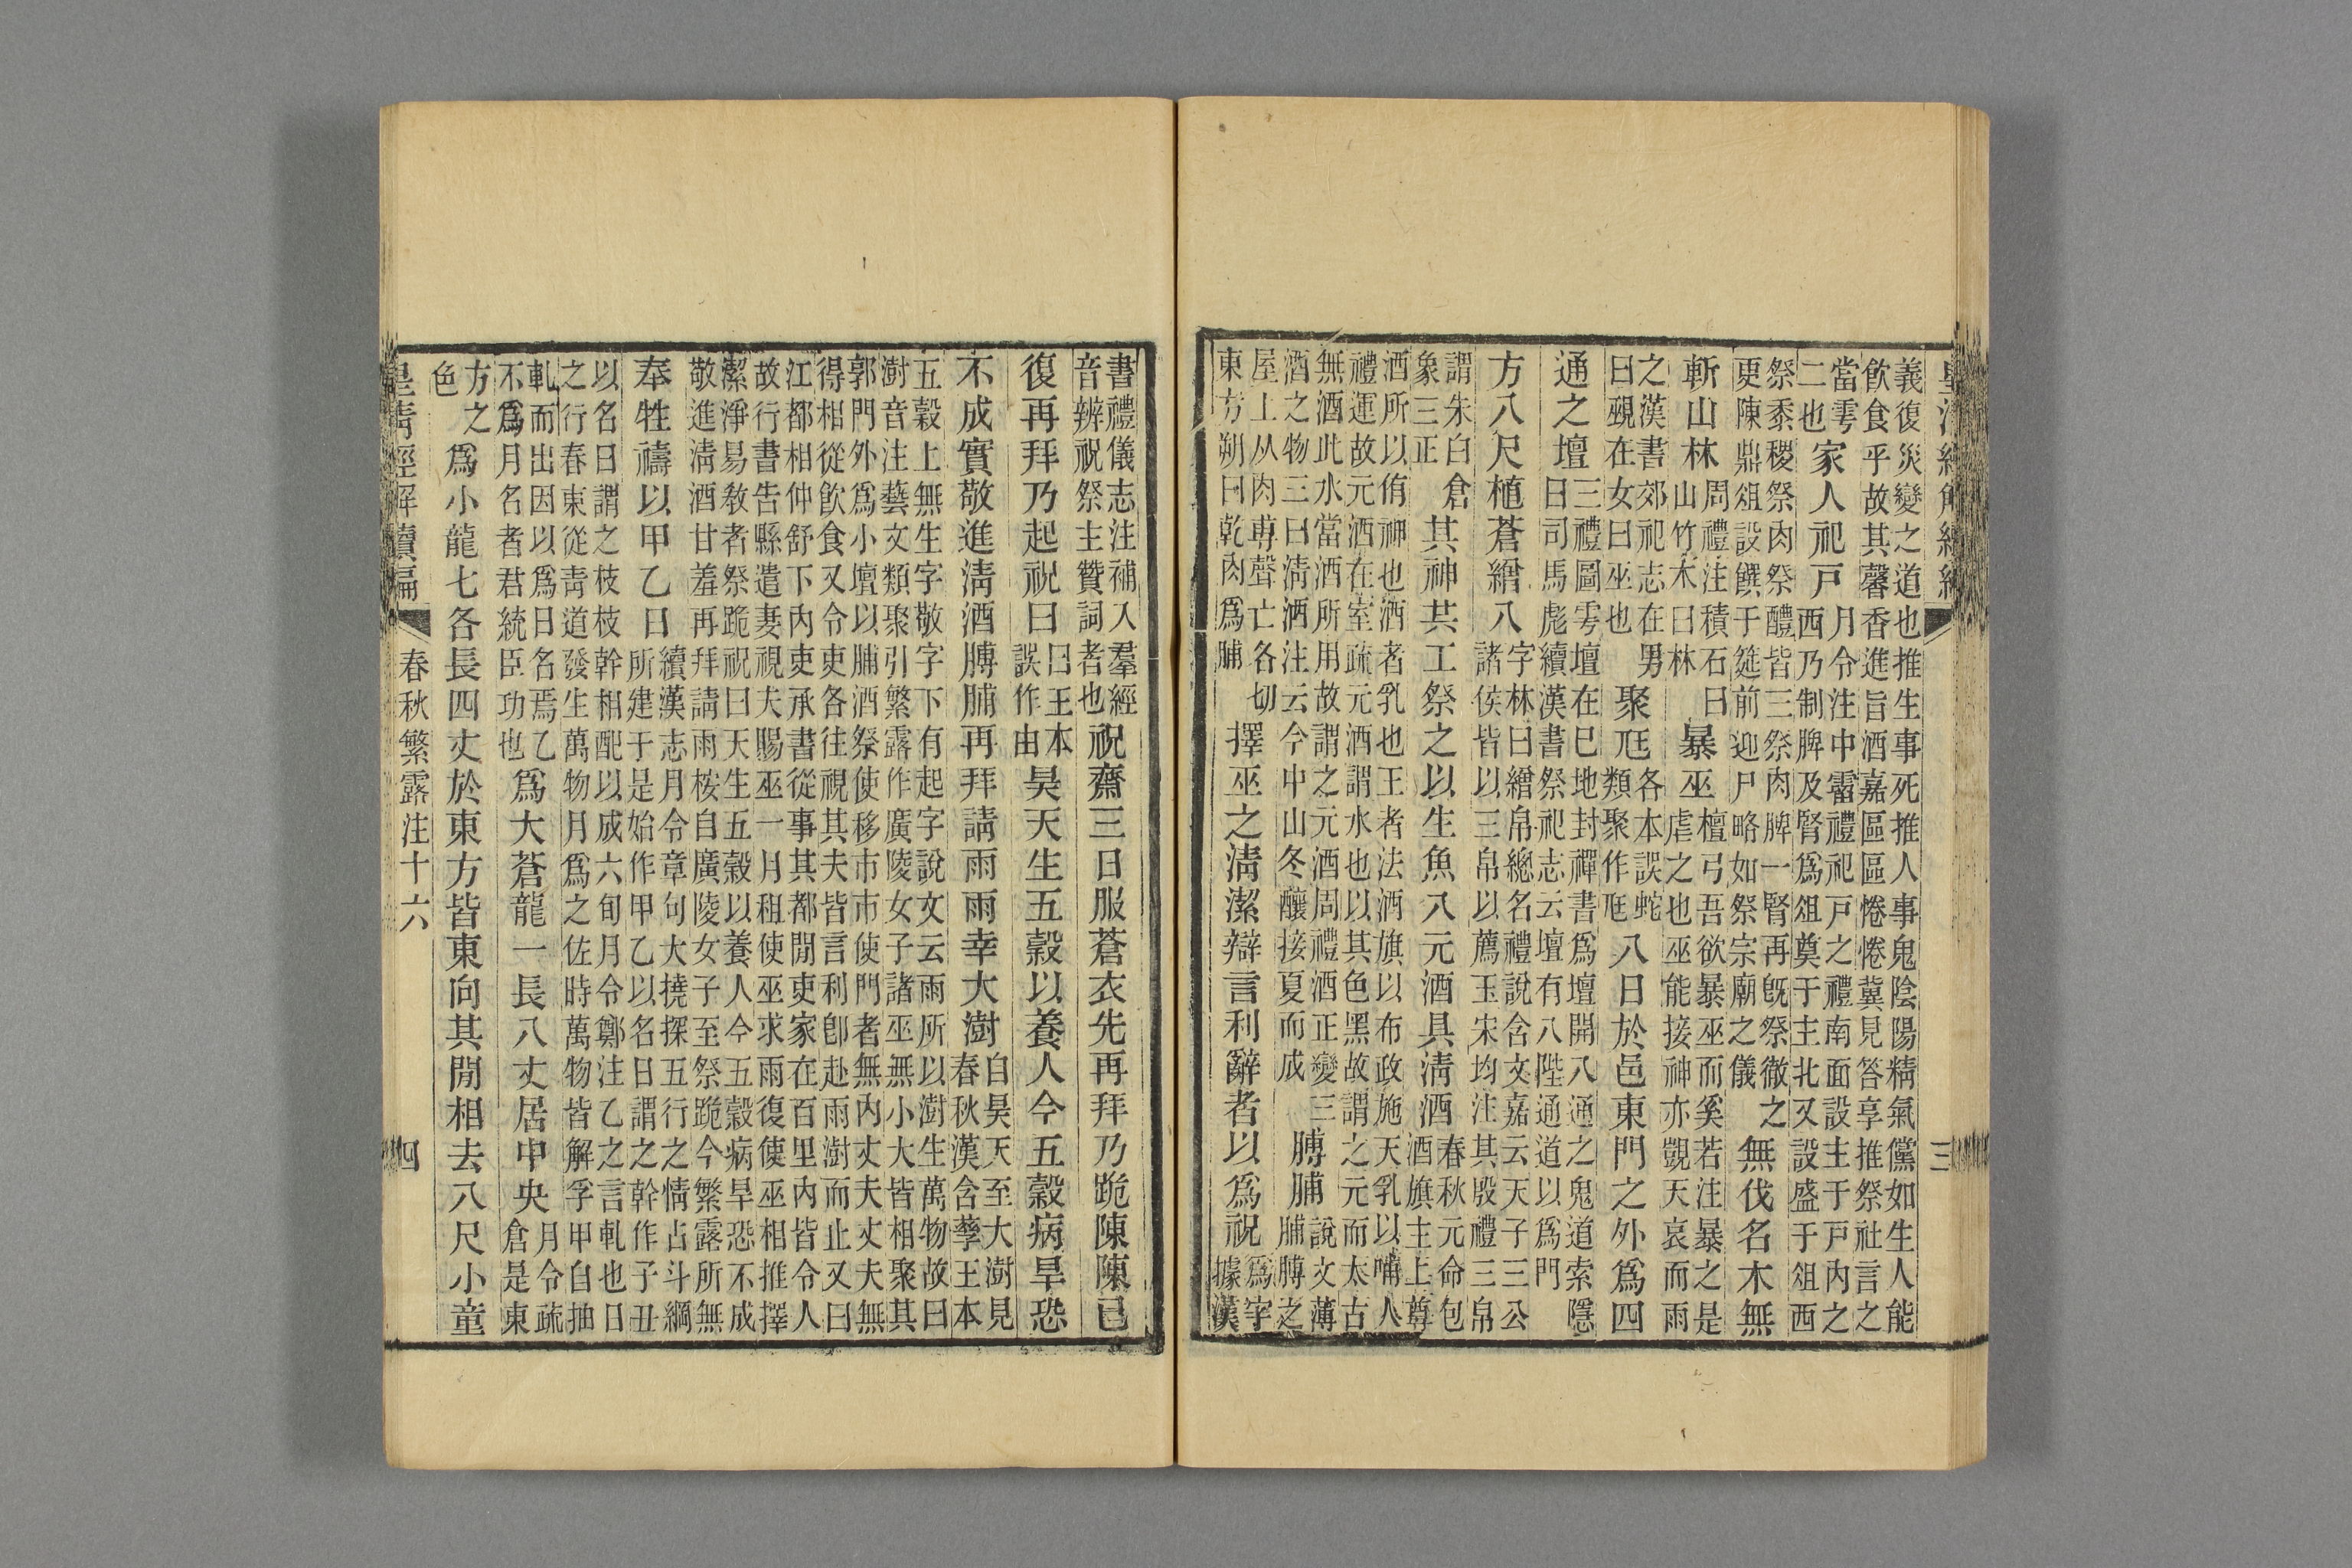 三
義復災變之道也推生事死推人事鬼陰陽精氣儻如生人能
飲食乎故其馨香進旨酒嘉區區惓惓冀見答享推祭社言之
當雩二也家人祀戶月令注中霤禮祀戶之禮南面設主于戶內之西乃制脾及腎爲俎奠于主北又設盛于俎西
祭黍稷祭肉祭醴皆三祭肉脾一腎再旣祭徹之更陳鼎俎設饌于筵前迎尸略如祭宗廟之儀無伐名木無
斬山林周禮注積石曰山竹木曰林暴巫檀弓吾欲暴巫而奚若注暴之是虐之也巫能接神亦覬天哀而雨
之漢書郊祀志在男曰覡在女曰巫也聚尫各本誤蛇類聚作尫八日於邑東門之外爲四
通之壇三禮圖雩壇在巳地封禪書爲壇開八通之鬼道索隱曰司馬彪續漢書祭祀志云壇有八陛通道以爲門
方八尺植蒼繒八字林曰繒帛總名禮說含文嘉云天子三公諸侯皆以三帛以薦玉宋均注其殷禮三帛
謂朱白倉象三正其神共工祭之以生魚八元酒具淸酒春秋元命包酒旗主上尊
酒所以侑神也酒者乳也王者法酒旗以布政施天乳以哺人
禮運故元酒在室疏元酒謂水也以其色黑故謂之元而太古
無酒此水當酒所用故謂之元酒周禮酒正變三酒之物三曰淸酒注云今中山冬釀接夏而成膊脯說文薄脯膊之
屋上从肉尃聲亡各切東方朔曰乾肉爲脯擇巫之淸潔辯言利辭者以爲祝爲字據漢
書禮儀志注補入羣經音辨祝祭主贊詞者也祝齋三日服蒼衣先再拜乃跪陳陳已
復再拜乃起祝曰曰王本誤作由昊天生五穀以養人今五穀病旱恐
不成實敬進淸酒膊脯再拜請雨雨幸大澍自昊天至大澍見春秋漢含孳王本
五穀上無生字敬字下有起字說文云雨所以澍生萬物故曰
澍音注藝文類聚引繁露作廣陵女子諸巫無小大皆相聚其
郭門外爲小壇以脯酒祭使移市市使門者無內丈夫丈夫無
得相從飲食又令吏各往視其夫皆言利卽赴雨澍而止又曰
江都相仲舒下內吏承書從事其都閒吏家在百里內皆令人
故行書告縣遣妻視夫賜巫一月租使巫求雨復使巫相推擇
潔淨易敎者祭跪祝曰天生五穀以養人今五穀病旱恐不成
敬進淸酒甘羞再拜請雨桉自廣陵女子至祭跪今繁露所無
奉牲禱以甲乙日續漢志月令章句大撓探五行之情占斗綱所建于是始作甲乙以名日謂之幹作子丑
以名日謂之枝枝幹相配以成六旬月令鄭注乙之言軋也日
之行春東從靑道發生萬物月爲之佐時萬物皆解孚甲自抽
軋而出因以爲日名焉乙不爲月名者君統臣功也爲大蒼龍一長八丈居中央月令疏倉是東
方之色爲小龍七各長四丈於東方皆東向其閒相去八尺小童
皇淸經解續編 春秋繁露注十六 四